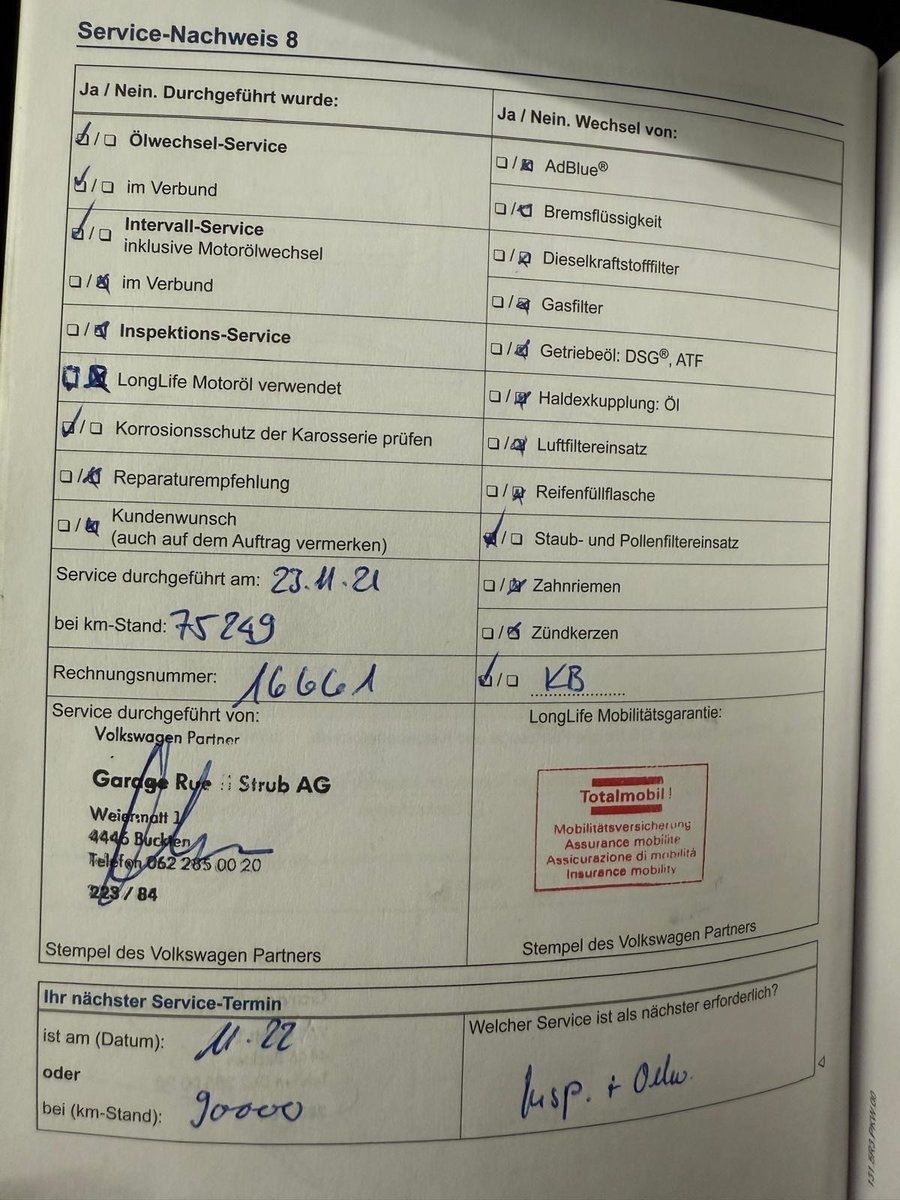 Service-Nachweis 8
Ja / Nein. Durchgeführt wurde:
☑/☐ Ölwechsel-Service
☑/☐ im Verbund
☑/☐ Intervall-Service
inklusive Motorölwechsel
☐/☒ im Verbund
☐/☒ Inspektions-Service
☐ ☒ LongLife Motoröl verwendet
☑/☐ Korrosionsschutz der Karosserie prüfen
☐/☒ Reparaturempfehlung
☐/☒ Kundenwunsch
(auch auf dem Auftrag vermerken)
Service durchgeführt am: 23.11.21
bei km-Stand: 75249
Rechnungsnummer: 16661
Ja / Nein. Wechsel von:
☐/☒ AdBlue®
☐/☒ Bremsflüssigkeit
☐/☒ Dieselkraftstofffilter
☐/☒ Gasfilter
☐/☒ Getriebeöl: DSG®, ATF
☐/☒ Haldexkupplung: Öl
☐/☒ Luftfiltereinsatz
☐/☒ Reifenfüllflasche
☑/☐ Staub- und Pollenfiltereinsatz
☐/☒ Zahnriemen
☐/☒ Zündkerzen
☑/☐ KB
Service durchgeführt von:
Volkswagen Partner
Garage Strub AG
4446 Buckten
Telefon 062 285 00 20
223 / 84
Stempel des Volkswagen Partners
LongLife Mobilitätsgarantie:
Totalmobil!
Mobilitätsversicherung
Assurance mobilité
Assicurazione di mobilità
Insurance mobility
Stempel des Volkswagen Partners
Ihr nächster Service-Termin
ist am (Datum): 11.22
oder
bei (km-Stand): 90000
Welcher Service ist als nächster erforderlich?
Insp. + Oelw.
131.5R3.PKW.00